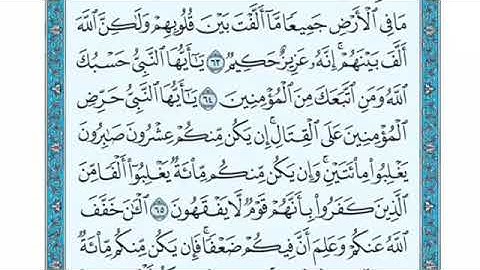 مَا فِي ٱلْأَرْضِ جَمِيعًا مَّآ أَلَّفْتَ بَيْنَ قُلُوبِهِمْ وَلَٰكِنَّ ٱللَّهَ
أَلَّفَ بَيْنَهُمْ ۚ إِنَّهُۥ عَزِيزٌ حَكِيمٌ ٦٣ يَٰٓأَيُّهَا ٱلنَّبِيُّ حَسْبُكَ
ٱللَّهُ وَمَنِ ٱتَّبَعَكَ مِنَ ٱلْمُؤْمِنِينَ ٦٤ يَٰٓأَيُّهَا ٱلنَّبِيُّ حَرِّضِ
ٱلْمُؤْمِنِينَ عَلَى ٱلْقِتَالِ ۚ إِن يَكُن مِّنكُمْ عِشْرُونَ صَٰبِرُونَ
يَغْلِبُوا۟ مِا۟ئَتَيْنِ ۚ وَإِن يَكُن مِّنكُم مِّا۟ئَةٌ يَغْلِبُوٓا۟ أَلْفًا مِّنَ
ٱلَّذِينَ كَفَرُوا۟ بِأَنَّهُمْ قَوْمٌ لَّا يَفْقَهُونَ ٦٥ ٱلْـَٰٔنَ خَفَّفَ
ٱللَّهُ عَنكُمْ وَعَلِمَ أَنَّ فِيكُمْ ضَعْفًا ۚ فَإِن يَكُن مِّنكُم مِّا۟ئَةٌ